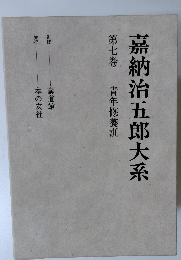 嘉納治五郎大系
第七巻　青年修養訓
監修——講道館
発売——本の友社